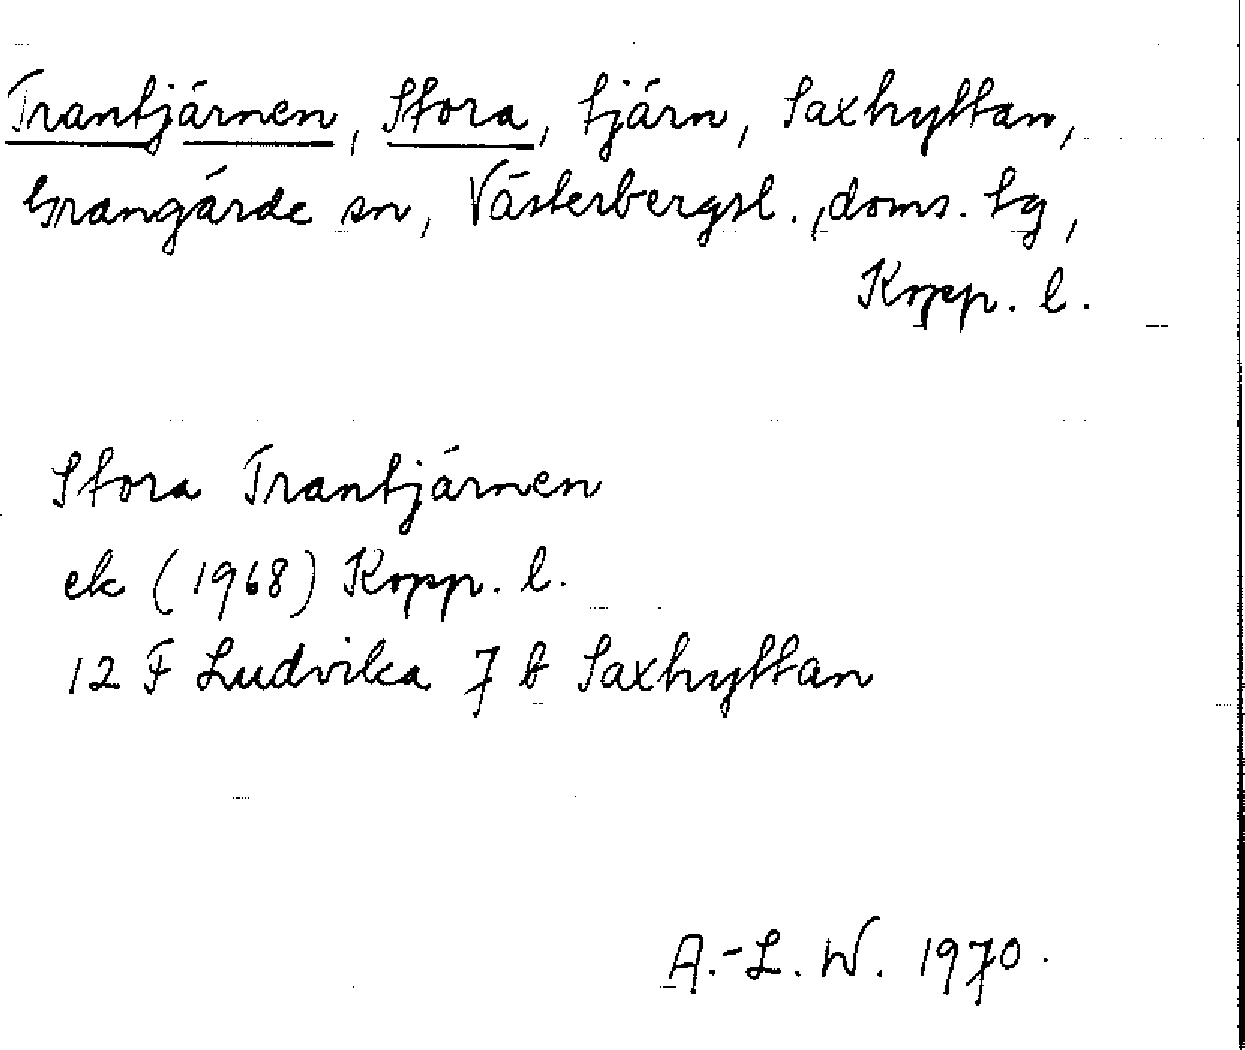 Trantjärnen, Stora, tjärn, Saxhyttan,
Grangärde sn, Västerbergsl., doms. tg,
Kopp. l.
Stora Trantjärnen
ek (1968) Kopp. l.
12 F Ludvika 7 b Saxhyttan
A.-L. W. 1970.